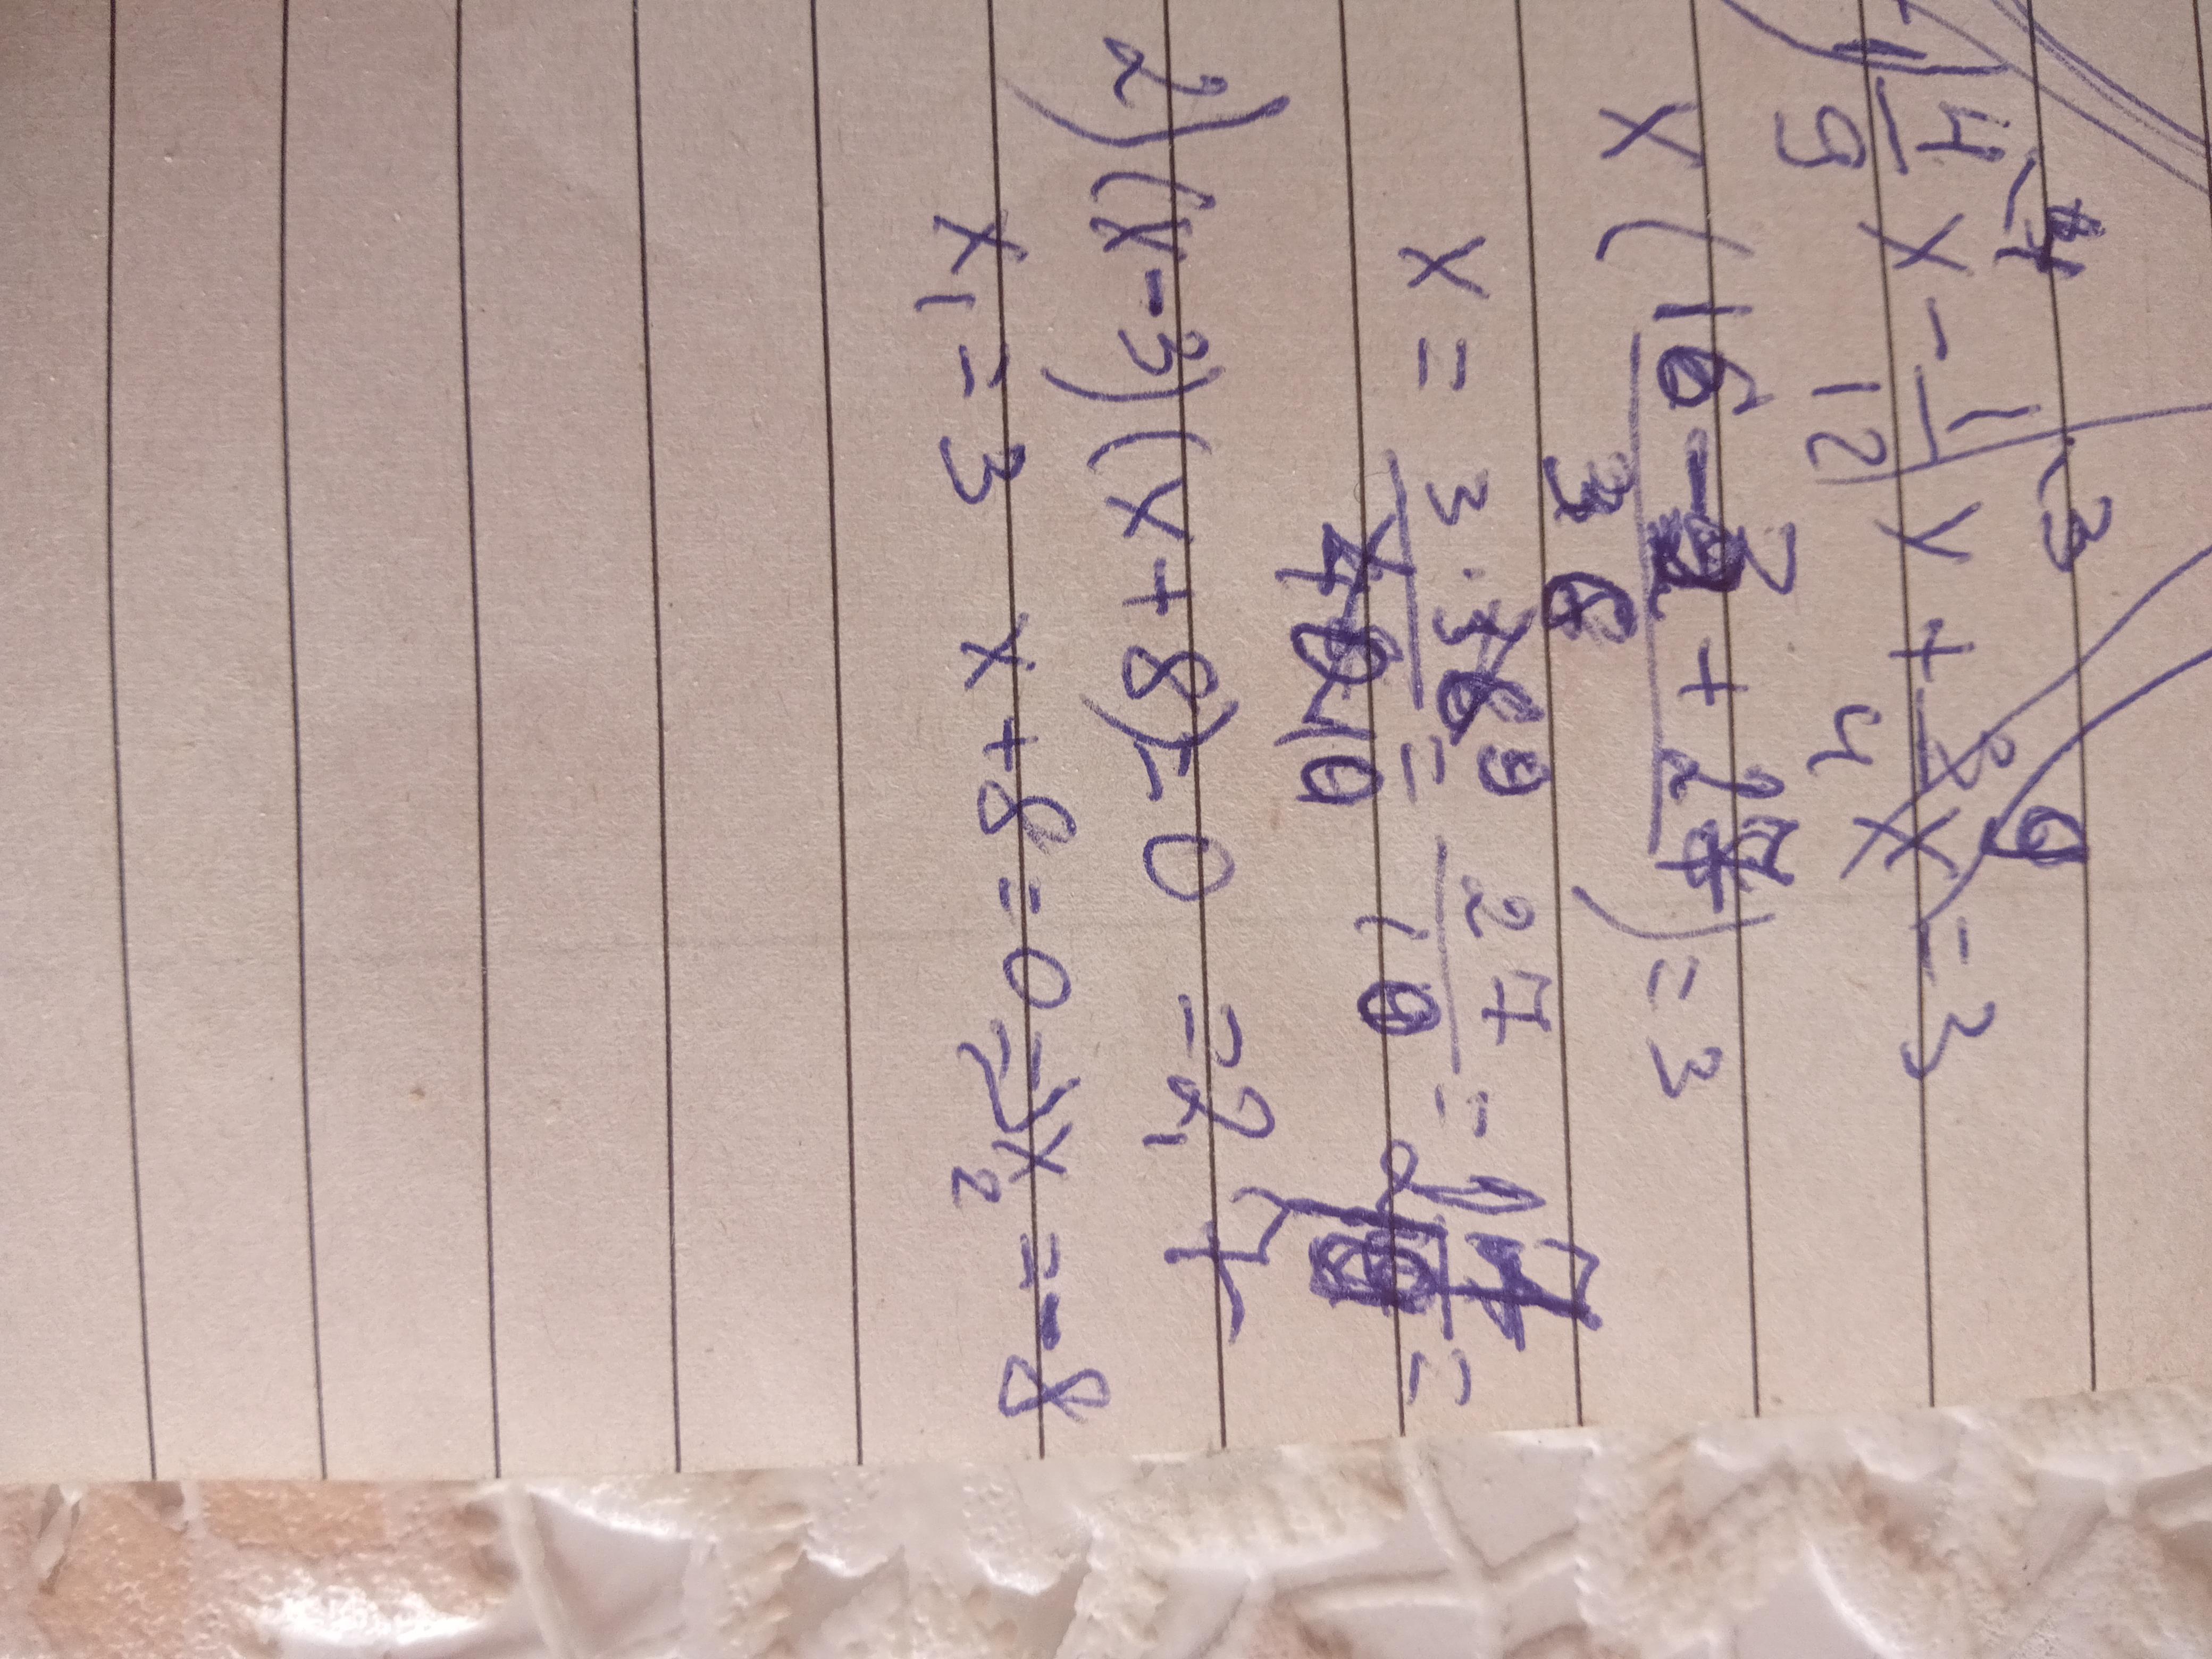 1) 4/9 x - 1/12 x + 3/4 x = 3
x (16 - 3 + 27)/36 = 3
x = 3 · 36 9/40 10 = 27/10 = 2
= 7
2) (x-3)(x+8) = 0 =
x₁ = 3 x + 8 = 0 => x₂ = -8